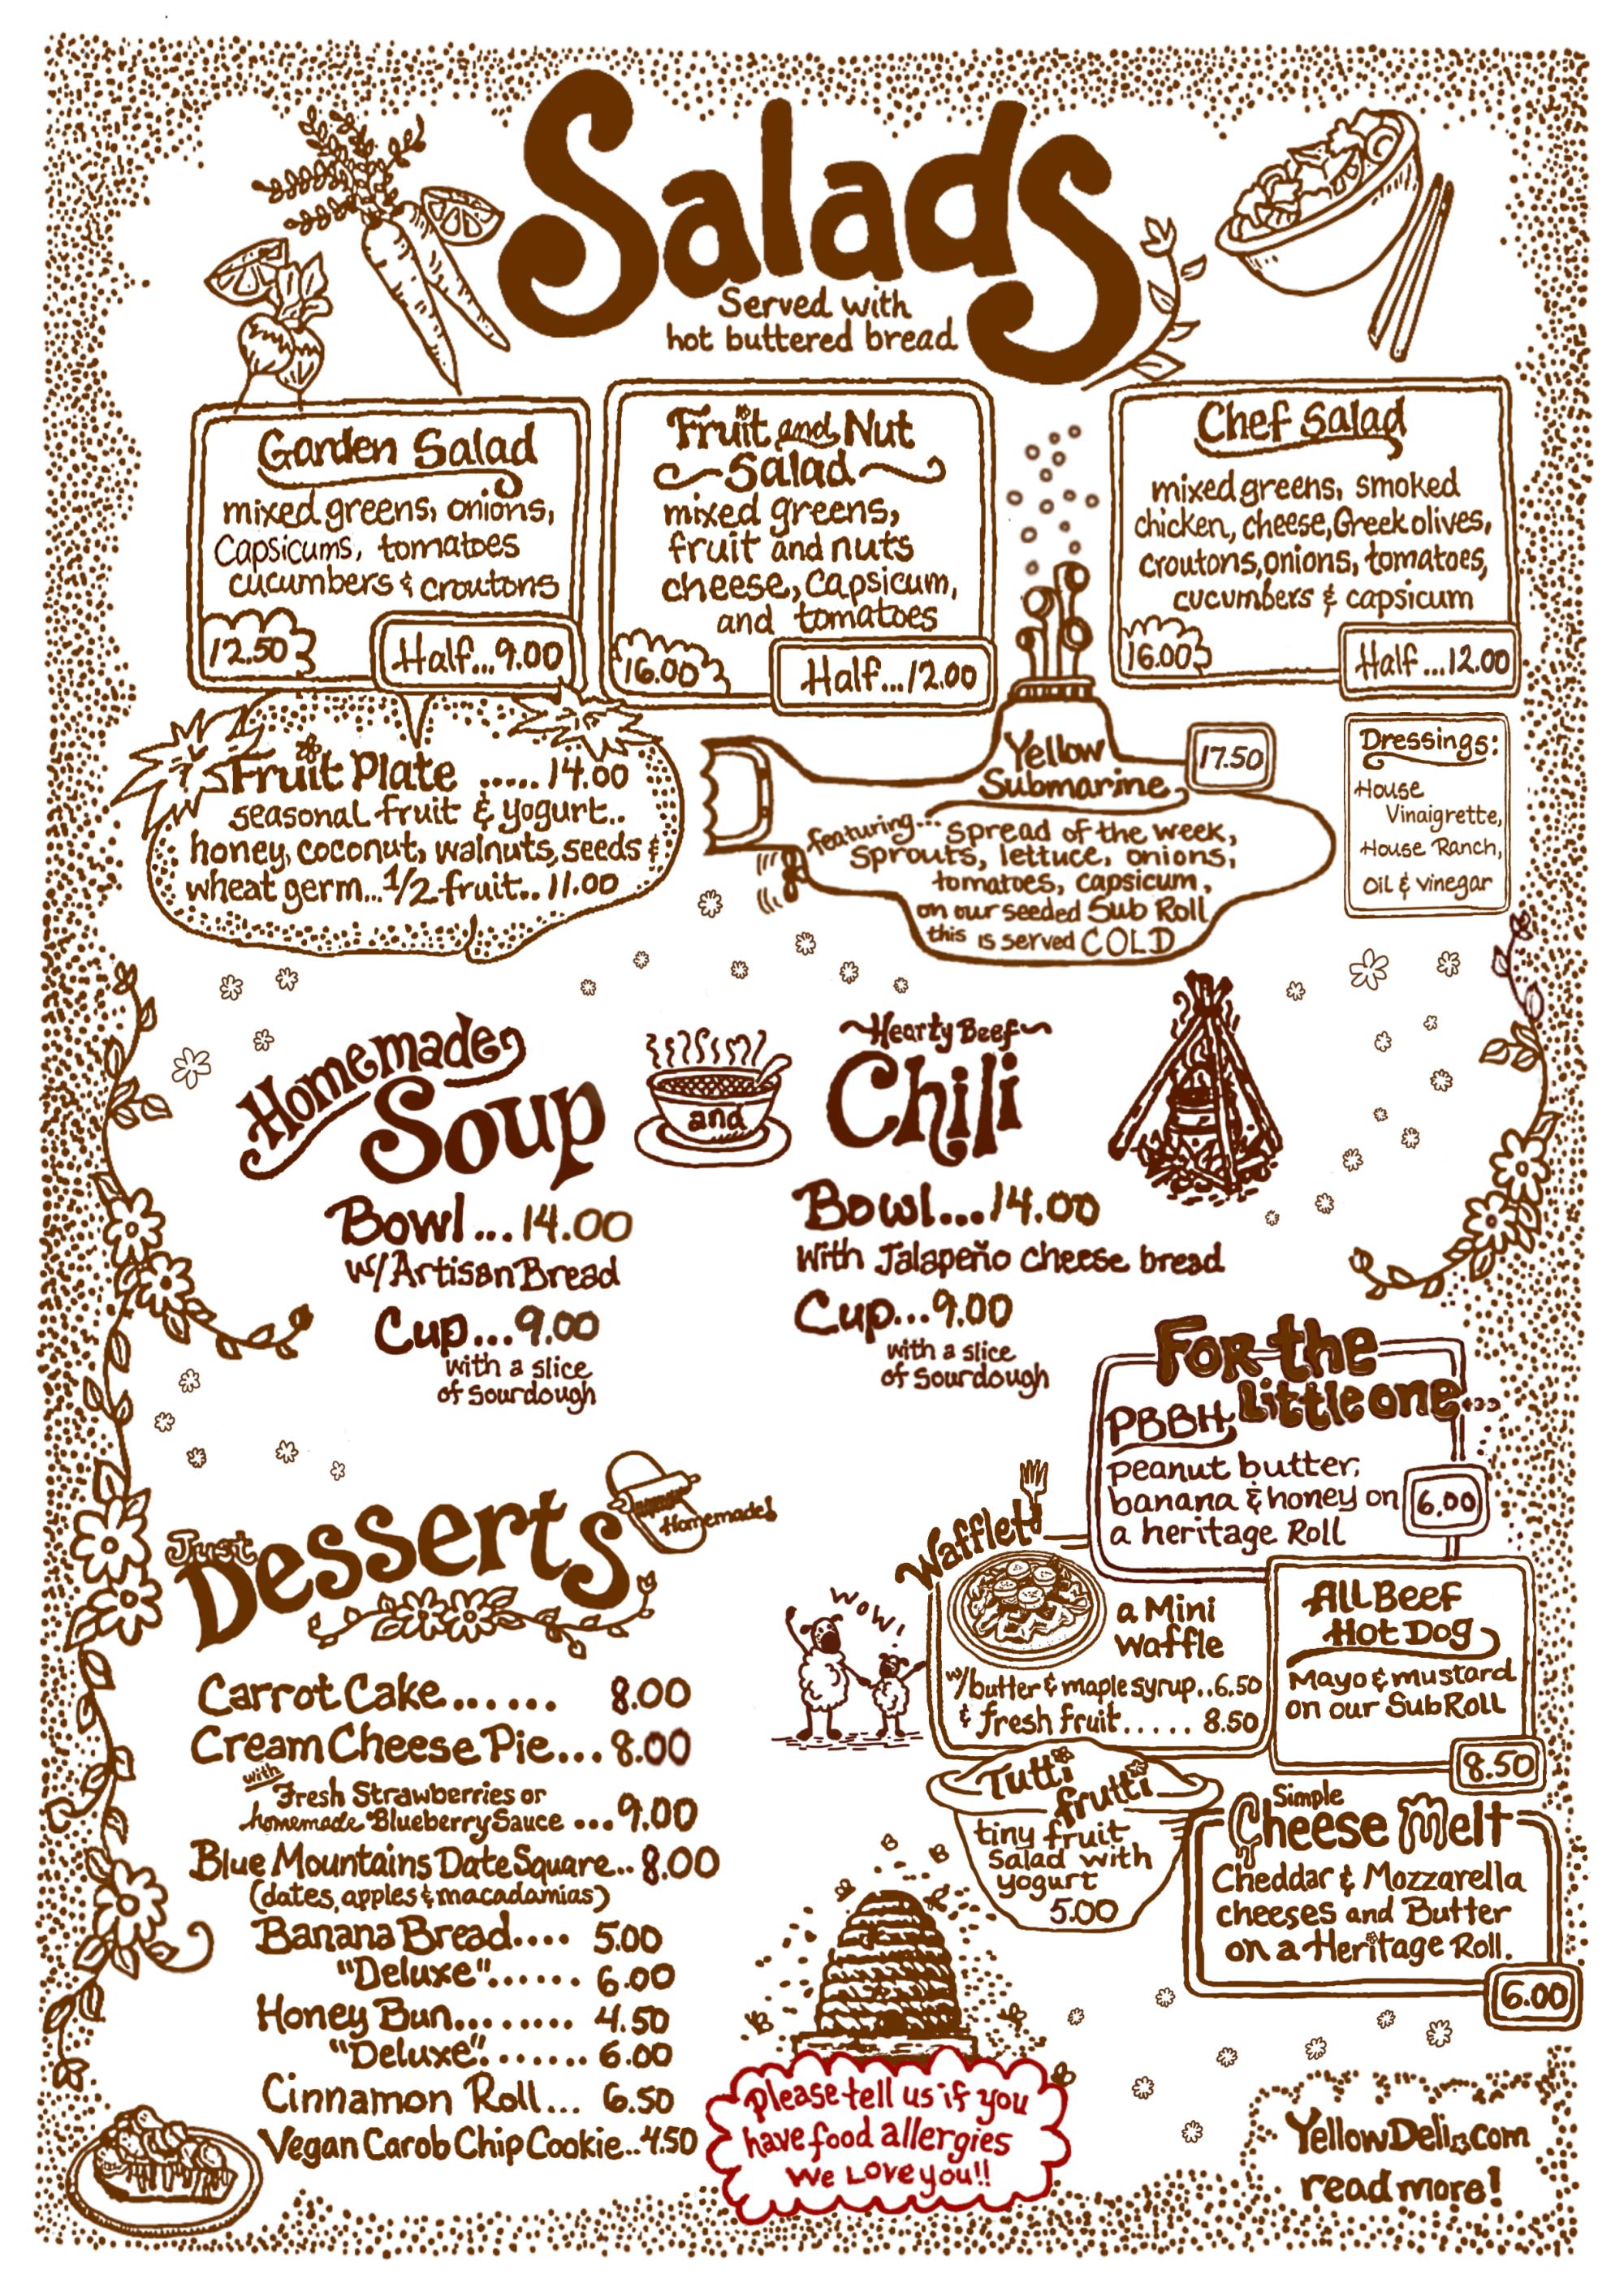 Salads
Served with
hot buttered bread
Garden Salad
mixed greens, onions,
Capsicums, tomatoes
cucumbers & croutons
12.50
Half...9.00
Fruit and Nut
Salad
mixed greens,
fruit and nuts
cheese, Capsicum,
and tomatoes
16.00
Half...12.00
Chef Salad
mixed greens, smoked
chicken, cheese, Greek olives,
croutons, onions, tomatoes,
cucumbers & capsicum
16.00
Half...12.00
Fruit Plate .....14.00
seasonal fruit & yogurt..
honey, coconut, walnuts, seeds &
wheat germ...1/2 fruit..11.00
Yellow
Submarine
17.50
featuring... spread of the week,
Sprouts, lettuce, onions,
tomatoes, capsicum,
on our seeded Sub Roll
this is served COLD
Dressings:
House
Vinaigrette,
House Ranch,
Oil & vinegar
Homemade
Soup
and
Hearty Beef
Chili
Bowl...14.00
w/Artisan Bread
Cup...9.00
with a slice
of sourdough
Bowl...14.00
With Jalapeño cheese bread
Cup...9.00
with a slice
of sourdough
For the
Little one...
PBBH
peanut butter,
banana & honey on
a heritage Roll
6.00
Wafflet
a Mini
waffle
w/butter & maple syrup..6.50
& fresh fruit..... 8.50
WOW!
All Beef
Hot Dog
Mayo & mustard
on our Sub Roll
8.50
Tutti
frutti
tiny fruit
salad with
yogurt
5.00
Simple
Cheese Melt
Cheddar & Mozzarella
cheeses and Butter
on a Heritage Roll.
6.00
Just
Desserts
Homemade!
Carrot Cake....... 8.00
Cream Cheese Pie... 8.00
with
Fresh Strawberries or
homemade Blueberry Sauce ...9.00
Blue Mountains Date Square.. 8.00
(dates, apples & macadamias)
Banana Bread.... 5.00
"Deluxe"...... 6.00
Honey Bun........ 4.50
"Deluxe"....... 6.00
Cinnamon Roll... 6.50
Vegan Carob Chip Cookie..4.50
please tell us if you
have food allergies
We Love you!!
YellowDeli.com
read more!